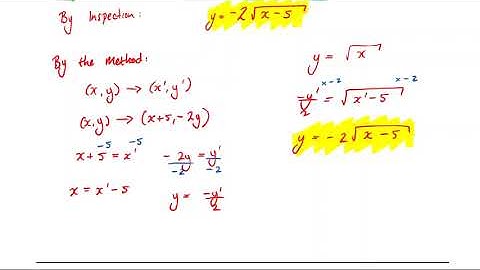 By Inspection: y = -2√(x-5)
By the method:
(x, y) → (x', y')
(x,y) → (x+5, -2y)
x + 5 = x' -5 -5
-2y/-2 = y'/-2
x = x' - 5
y = -y'/2
y = √x
x-2 x-2
-y'/2 = √(x'-5)
y = -2√(x-5)